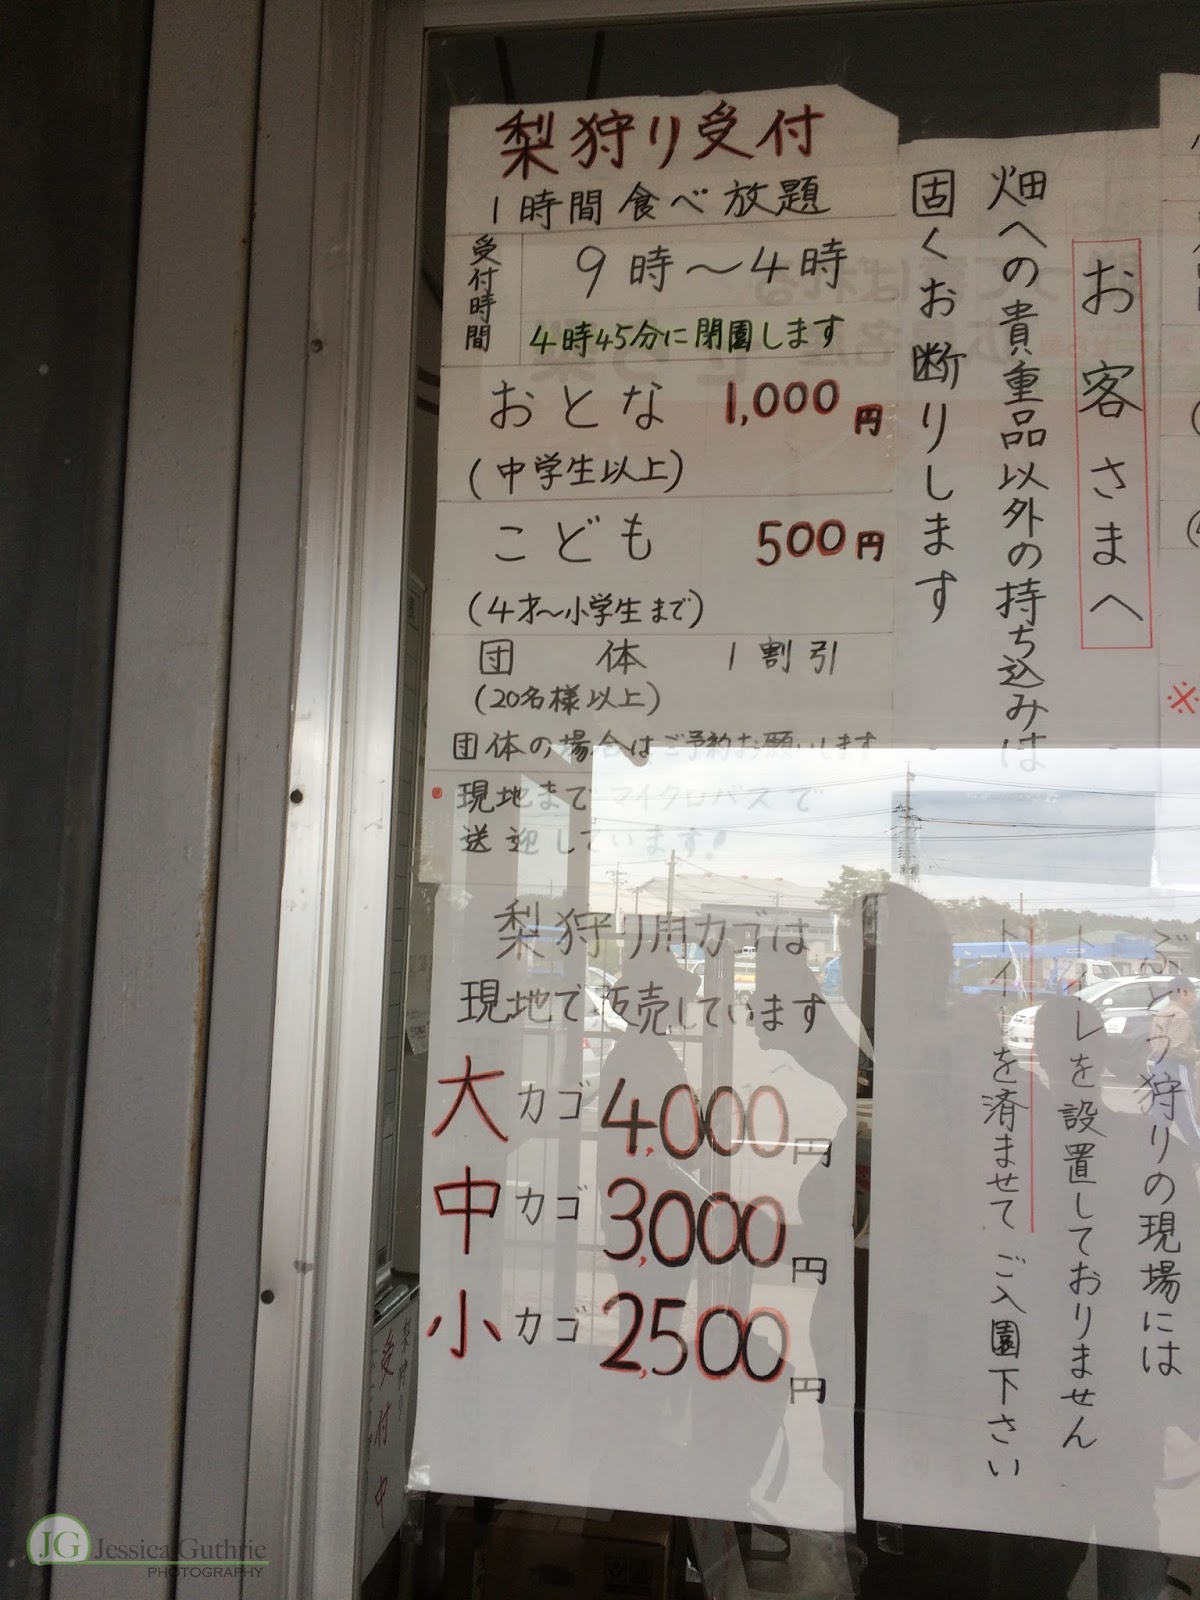 梨狩り受付
1時間食べ放題
受付時間
9時～4時
4時45分に閉園します
おとな 1,000円
(中学生以上)
こども 500円
(4才～小学生まで)
団体 1割引
(20名様以上)
団体の場合はご予約お願いします
現地までマイクロバスで
送迎しています!
梨狩り用カゴは
現地で販売しています
大カゴ 4,000円
中カゴ 3,000円
小カゴ 2,500円
お客さまへ
畑への貴重品以外の持ち込みは
固くお断りします
ぶどう狩りの現場には
トイレを設置しておりません
トイレを済ませてご入園下さい
※
受付中
JG Jessica Guthrie
PHOTOGRAPHY